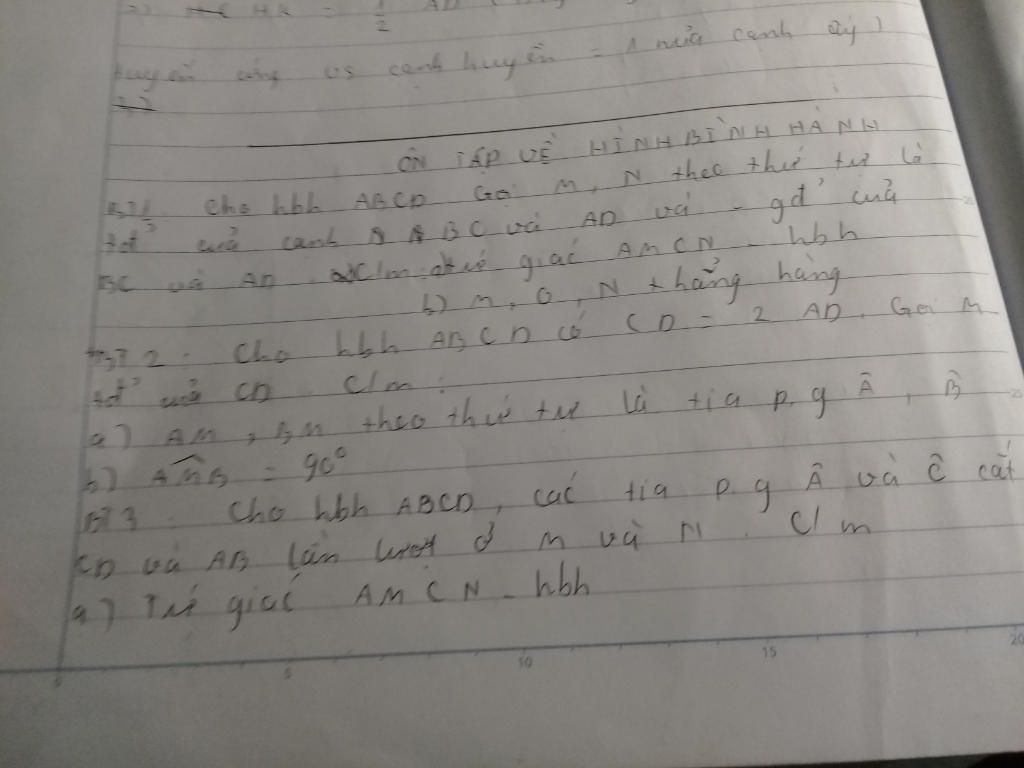 = 1/2 AD
tuyến ứng vs cạnh huyền = 1 nửa cạnh ấy)
ÔN TẬP VỀ HÌNH BÌNH HÀNH
BT1. Cho hbh ABCD Gọi M, N theo thứ tự là
tđ² của cạnh BC và AD và = gđ² của
BC và AD. a) C/m: tứ giác AMCN = hbh
b) M, O, N thẳng hàng
BT2: Cho hbh ABCD có CD = 2 AD. Gọi M
tđ² của CD C/m:
a) AM, BM theo thứ tự là tia p.g Â, B̂
b) AMB = 90°
BT3. Cho hbh ABCD, các tia p.g Â và Ĉ cắt
CD và AB lần lượt ở M và N. C/m
a) Tứ giác AMCN = hbh
5 10 15 20